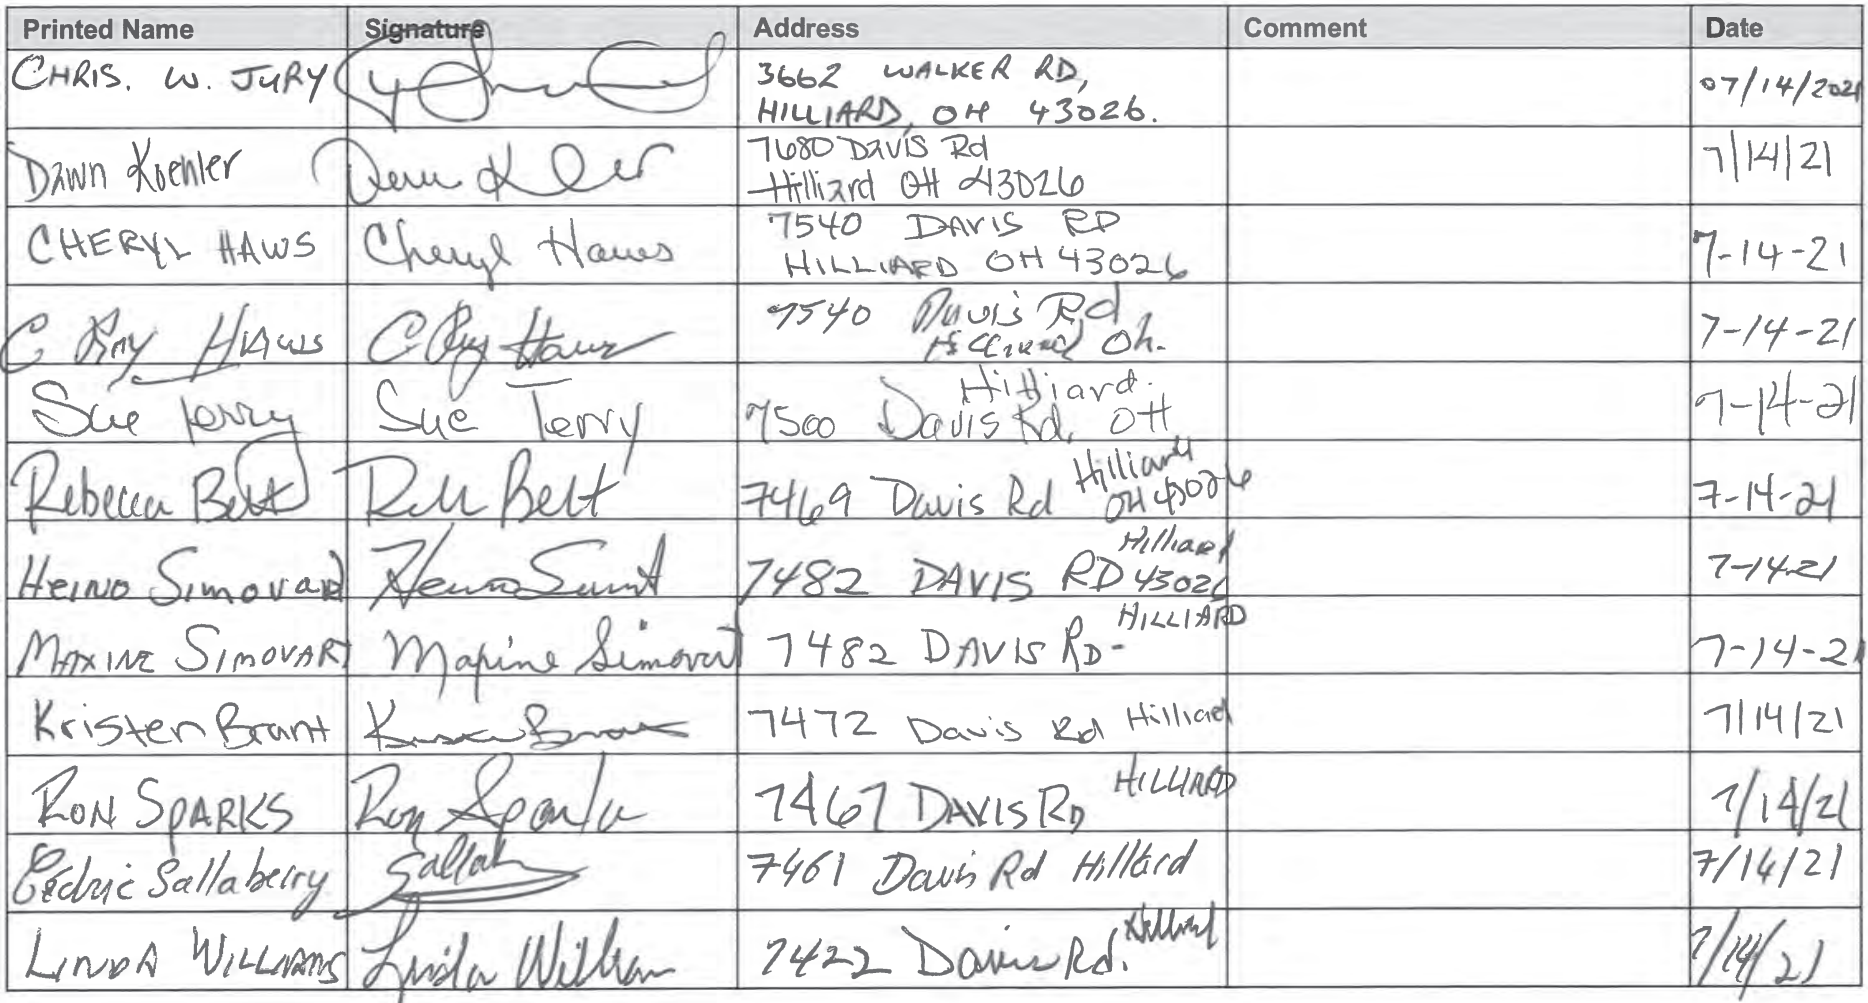 Printed Name Signature Address Comment Date
CHRIS. W. JURY 3662 WALKER RD, 07/14/2021
HILLIARD, OH 43026.
Dawn Koehler 7680 Davis Rd 7/14/21
Hilliard OH 43026
CHERYL HAWS Cheryl Haws 7540 DAVIS RD 7-14-21
HILLIARD OH 43026
C Ray Haws C Ray Haws 7540 Davis Rd 7-14-21
Oh.
Sue Terry Sue Terry 7500 Davis Rd, Hilliard. OH 7-14-21
Rebecca Belt Belt 7469 Davis Rd Hilliard 7-14-21
OH 43026
Heino Simovart 7482 DAVIS RD Hilliard 7-14-21
43026
MAXINE SIMOVART Maxine Simovart 7482 DAVIS RD- HILLIARD 7-14-21
Kristen Brant 7472 Davis Rd Hilliard 7/14/21
RON SPARKS Ron Sparks 7467 DAVIS RD HILLIARD 7/14/21
Cedric Sallaberry 7461 Davis Rd Hilliard 7/14/21
LINDA WILLIAMS Linda Williams 7422 Davis Rd. Hilliard 7/14/21